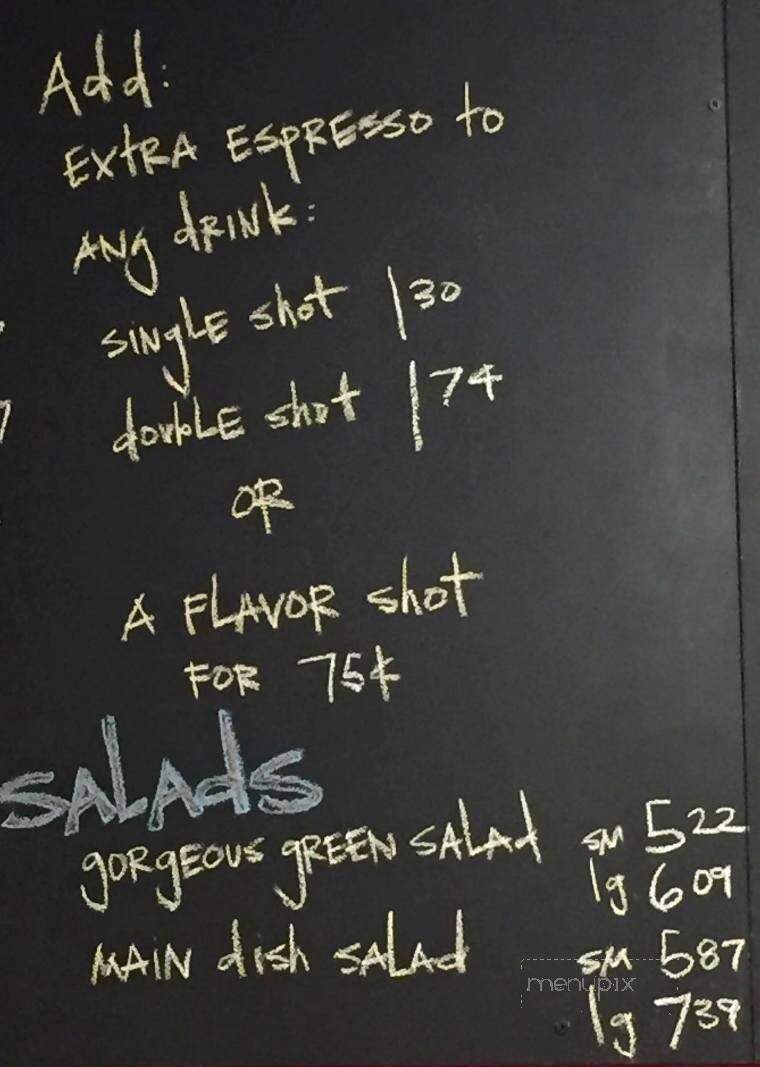 Add:
EXTRA ESPRESSO to
ANY dRINK:
SINGLE shot 130
double shot 174
OR
A FLAVOR shot
FOR 75¢
SALAdS
gORgEOUS gREEN SALAd sm 522
lg 609
MAIN dish SALAd sm 587
menupix
lg 739